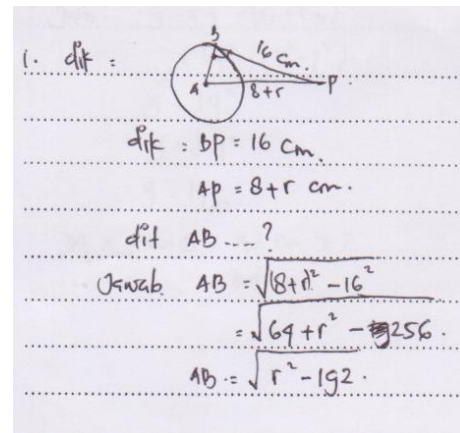 B
1. dik :
16 cm.
A 8+r P.
dik : BP = 16 cm.
AP = 8+r cm.
dit AB ....?
Jawab. AB = √(8+r)² - 16²
= √64 + r² - 256.
AB = √r² - 192.